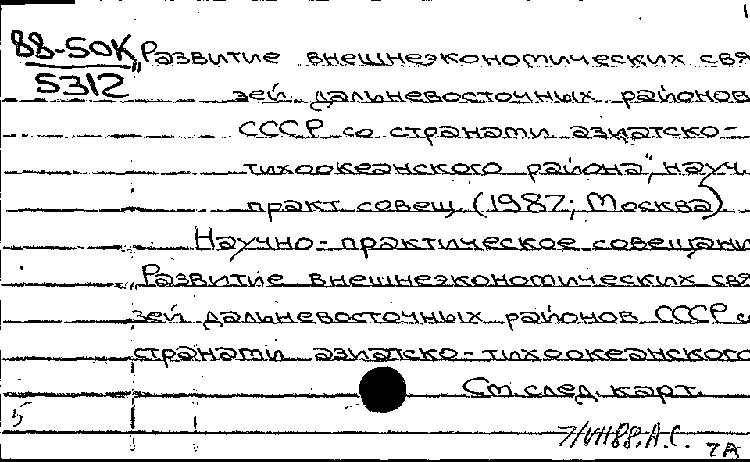 1
88-SOK
5312
"Развитие внешнеэкономических свя
зей дальневосточных районов
СССР со странами азиатско-
тихоокеанского района", науч.
практ. совещ (1987; Москва)
Научно-практическое совещани
"Развитие внешнеэкономических свя
зей дальневосточных районов СССР с
странами азиатско-тихоокеанского
См. след. карт.
5
7/VII 88. А.С.
7А